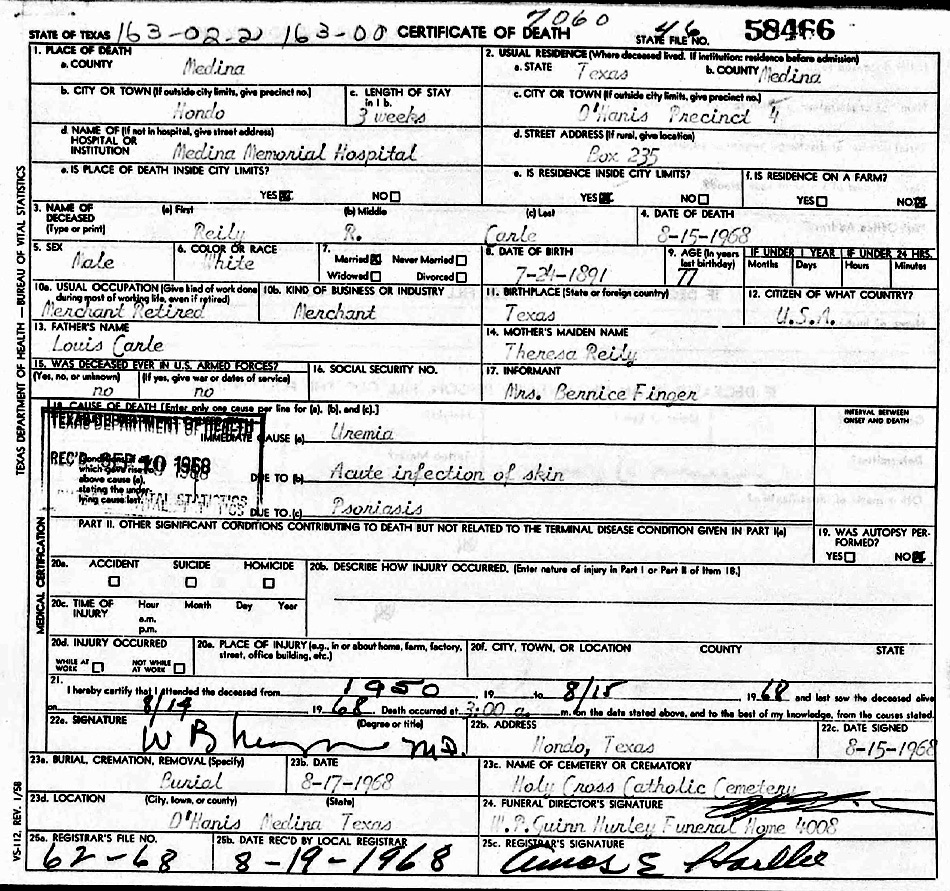 7060
STATE OF TEXAS 163-02-2 163-00 CERTIFICATE OF DEATH 46 STATE FILE NO. 58466
1. PLACE OF DEATH
a. COUNTY Medina
2. USUAL RESIDENCE (Where deceased lived. If institution: residence before admission)
a. STATE Texas b. COUNTY Medina
b. CITY OR TOWN (If outside city limits, give precinct no.) Hondo
c. LENGTH OF STAY in 1 b. 3 weeks
c. CITY OR TOWN (If outside city limits, give precinct no.) D'Hanis Precinct 4
d. NAME OF (If not in hospital, give street address) HOSPITAL OR INSTITUTION Medina Memorial Hospital
d. STREET ADDRESS (If rural, give location) Box 235
e. IS PLACE OF DEATH INSIDE CITY LIMITS?
YES NO
e. IS RESIDENCE INSIDE CITY LIMITS?
YES NO
f. IS RESIDENCE ON A FARM?
YES NO
3. NAME OF DECEASED (Type or print) (a) First Reily (b) Middle R. (c) Last Carle
4. DATE OF DEATH 8-15-1968
5. SEX Male
6. COLOR OR RACE White
7. Married Never Married
Widowed Divorced
8. DATE OF BIRTH 7-24-1891
9. AGE (In years last birthday) 77
IF UNDER 1 YEAR Months Days
IF UNDER 24 HRS. Hours Minutes
10a. USUAL OCCUPATION (Give kind of work done during most of working life, even if retired) Merchant Retired
10b. KIND OF BUSINESS OR INDUSTRY Merchant
11. BIRTHPLACE (State or foreign country) Texas
12. CITIZEN OF WHAT COUNTRY? U.S.A.
13. FATHER'S NAME Louis Carle
14. MOTHER'S MAIDEN NAME Theresa Reily
15. WAS DECEASED EVER IN U.S. ARMED FORCES?
(Yes, no, or unknown) no (If yes, give war or dates of service) no
16. SOCIAL SECURITY NO.
17. INFORMANT Mrs. Bernice Finger
18. CAUSE OF DEATH [Enter only one cause per line for (a), (b), and (c).]
INTERVAL BETWEEN ONSET AND DEATH
TEXAS DEPARTMENT OF HEALTH
REC'D SEP 10 1968
VITAL STATISTICS
IMMEDIATE CAUSE (a) Uremia
Conditions, if which gave rise to above cause (a), stating the underlying cause last.
DUE TO (b) Acute infection of skin
DUE TO (c) Psoriasis
PART II. OTHER SIGNIFICANT CONDITIONS CONTRIBUTING TO DEATH BUT NOT RELATED TO THE TERMINAL DISEASE CONDITION GIVEN IN PART I(a)
19. WAS AUTOPSY PERFORMED?
YES NO
20a. ACCIDENT SUICIDE HOMICIDE
20b. DESCRIBE HOW INJURY OCCURRED. (Enter nature of injury in Part I or Part II of Item 18.)
20c. TIME OF INJURY Hour Month Day Year
a.m.
p.m.
20d. INJURY OCCURRED
WHILE AT WORK NOT WHILE AT WORK
20e. PLACE OF INJURY (e.g., in or about home, farm, factory, street, office building, etc.)
20f. CITY, TOWN, OR LOCATION COUNTY STATE
21. I hereby certify that I attended the deceased from 1950, 19 to 8/15 1968 and last saw the deceased alive
on 8/14 1968 Death occurred at 3:00 a. m. on the date stated above, and to the best of my knowledge, from the causes stated.
22a. SIGNATURE (Degree or title) M.D.
22b. ADDRESS Hondo, Texas
22c. DATE SIGNED 8-15-1968
23a. BURIAL, CREMATION, REMOVAL (Specify) Burial
23b. DATE 8-17-1968
23c. NAME OF CEMETERY OR CREMATORY Holy Cross Catholic Cemetery
23d. LOCATION (City, town, or county) (State) D'Hanis Medina Texas
24. FUNERAL DIRECTOR'S SIGNATURE W.P. Guinn Hurley Funeral Home 4008
25a. REGISTRAR'S FILE NO. 62-68
25b. DATE REC'D BY LOCAL REGISTRAR 8-19-1968
25c. REGISTRAR'S SIGNATURE Amos E
TEXAS DEPARTMENT OF HEALTH — BUREAU OF VITAL STATISTICS
MEDICAL CERTIFICATION
VS-112, REV. 1/58